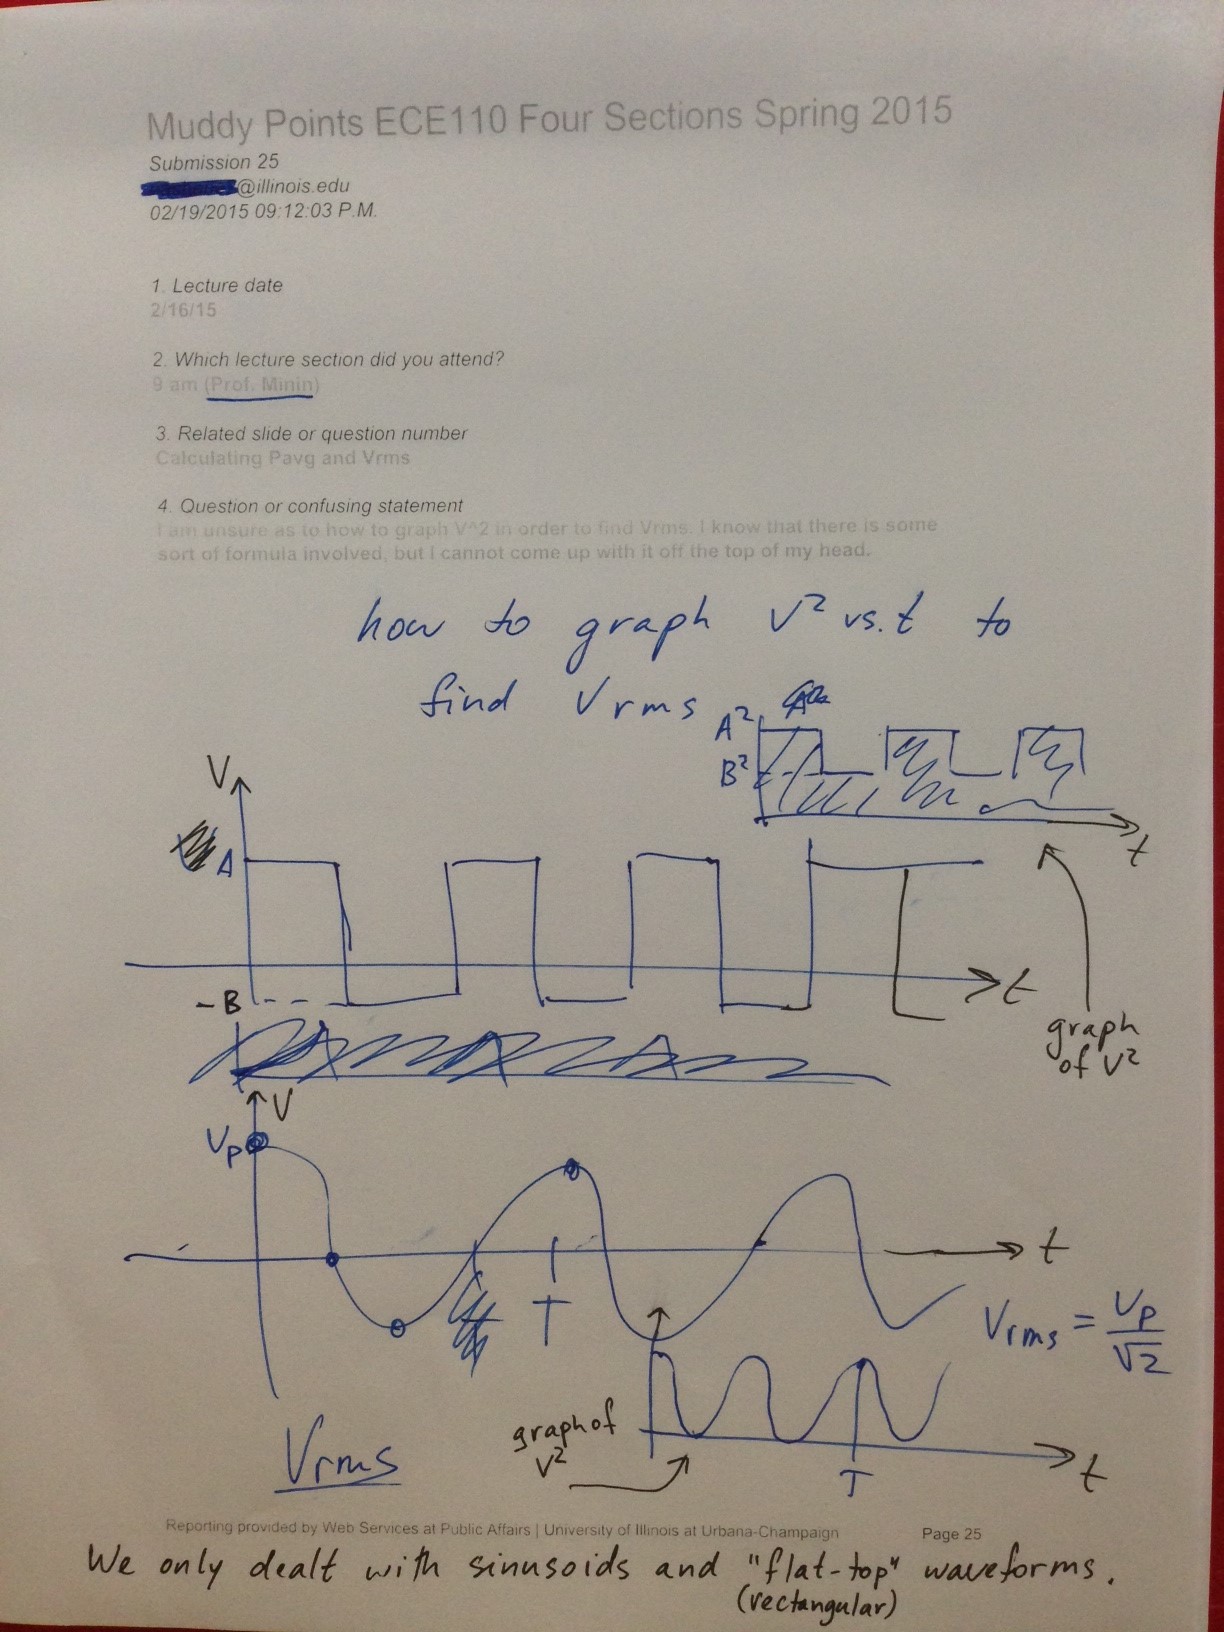 Muddy Points ECE110 Four Sections Spring 2015
Submission 25
@illinois.edu
02/19/2015 09:12:03 P.M.
1. Lecture date
2/16/15
2. Which lecture section did you attend?
9 am (Prof. Minin)
3. Related slide or question number
Calculating Pavg and Vrms
4. Question or confusing statement
I am unsure as to how to graph V^2 in order to find Vrms. I know that there is some
sort of formula involved, but I cannot come up with it off the top of my head.
how to graph V² vs. t to
find Vrms
A²
B²
t
V
A
-B
t
graph
of V²
V
Vp
t
T
Vrms = Vp/√2
graph of
V²
T
t
Vrms
Reporting provided by Web Services at Public Affairs | University of Illinois at Urbana-Champaign Page 25
We only dealt with sinusoids and "flat-top" waveforms.
(rectangular)